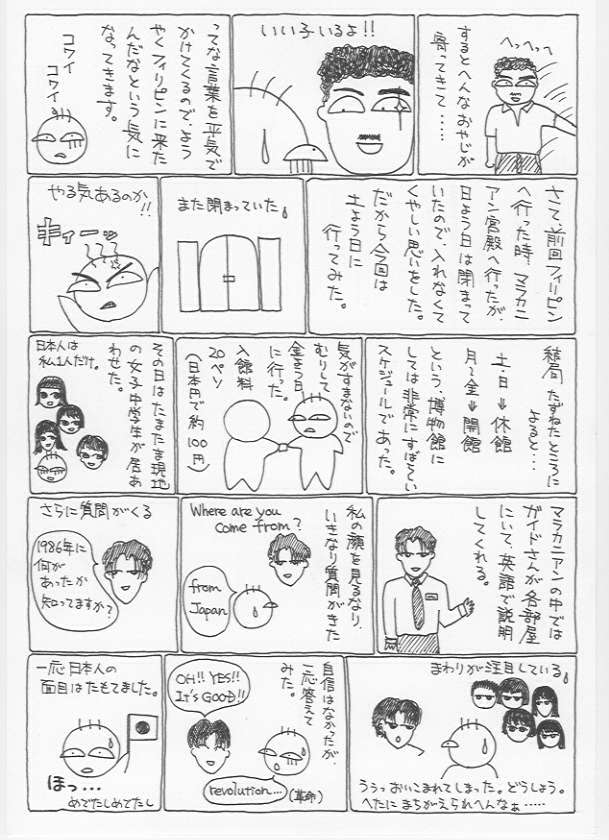 へっへっへ
するとへんなおやじが
寄ってきて……
いい子いるよ!!
ってな言葉を平気で
かけてくるので、よう
やくフィリピンに来た
んだなという気に
なってきます。
コワイ
コワイ
さて、前回フィリピン
へ行った時、マラカニ
アン宮殿へ行ったが、
日よう日は閉まって
いたので、入れなくて
くやしい思いをした。
だから今回は
土よう日に
行ってみた。
また閉まっていた。
やる気あるのか!!
キィーッ
結局、たずねたところに
よると…
土・日→休館
月〜金→開館
という、博物館に
しては非常にすばらしい
スケジュールであった。
気がすまないので
むりして
金よう日
に行った。
入館料
20ペソ
(日本円で約
100円)
その日はたまたま現地
の女子中学生が居あ
わせた。
日本人は
私1人だけ。
マラカニアンの中では
ガイドさんが各部屋
にいて、英語で説明
してくれる。
私の顔を見るなり、
いきなり質問がきた
Where are you
come from?
from
Japan
さらに質問がくる
1986年に
何が
あったか
知ってますか?
まわりが注目している。
ううっおいこまれてしまった。どうしよう。
へたにまちがえられへんなぁ……
自信はなかったが、
一応答えて
みた。
OH!! YES!!
It's GOOD!!
revolution…
(革命)
一応日本人の
面目はたもてました。
ほっ…
めでたしめでたし